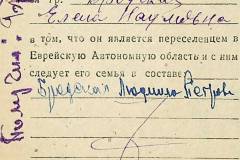 гр.
Елена Наумовна
в том, что он является переселенцем в
Еврейскую Автономную область и с ним
следует его семья в составе
Бродская Людмила Петров